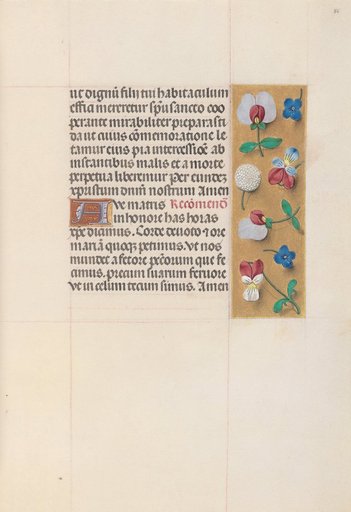 ut dignū filii tui habitaculum
effici mereretur spū sancto coo
perante mirabiliter preparasti
da ut cuius cōmemoratione le
tamur eius pia intercessiōe ab
instantibus malis et a morte
perpetua liberemur Per eundez
xpristum dnm nostrum Amen
Ave matris Recōmend̄
in honore has horas
xpe dicimus. Corde devoto ⁊ ore
mariā quoqz petimus. ut nos
mundet a fetore pecōrum que fe
cimus. precum suarum fervore
ve in celum tecum simus. Amen